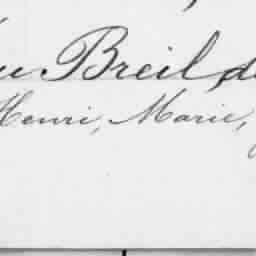 du Breil, de
Henri, Marie,